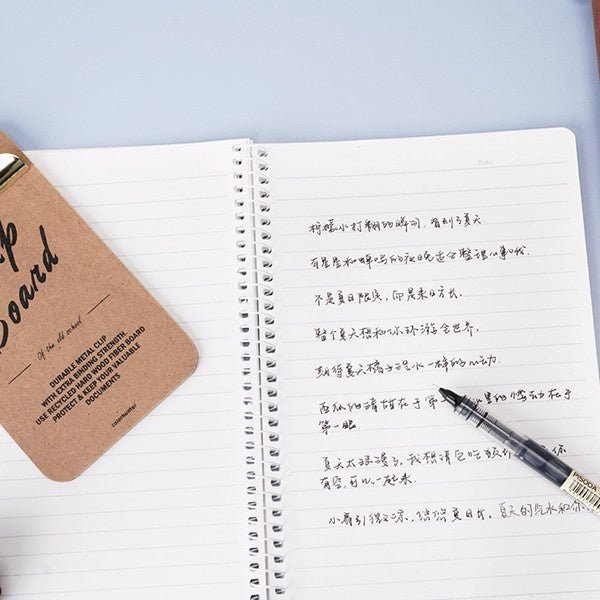 Board
Of the old school
DURABLE METAL CLIP
WITH EXTRA BINDING STRENGTH
USE RECYCLED HARD WOOD FIBER BOARD
PROTECT & KEEP YOUR VALUABLE
DOCUMENTS
Date
柠檬小打翻的瞬间,看到了夏天
有星星和蝉鸣的夜晚适合整理心事
不是夏日限定,而是来日方长.
整个夏天想和你环游全世界.
期待夏天橘子汽水一样的心动.
西瓜的清甜在于第一 心里的悸动在于
第一眼
夏天太浪漫了,我想请你吃
有空,可以一起来.
小暑引微凉,悠悠夏日长,夏天的汽水和你